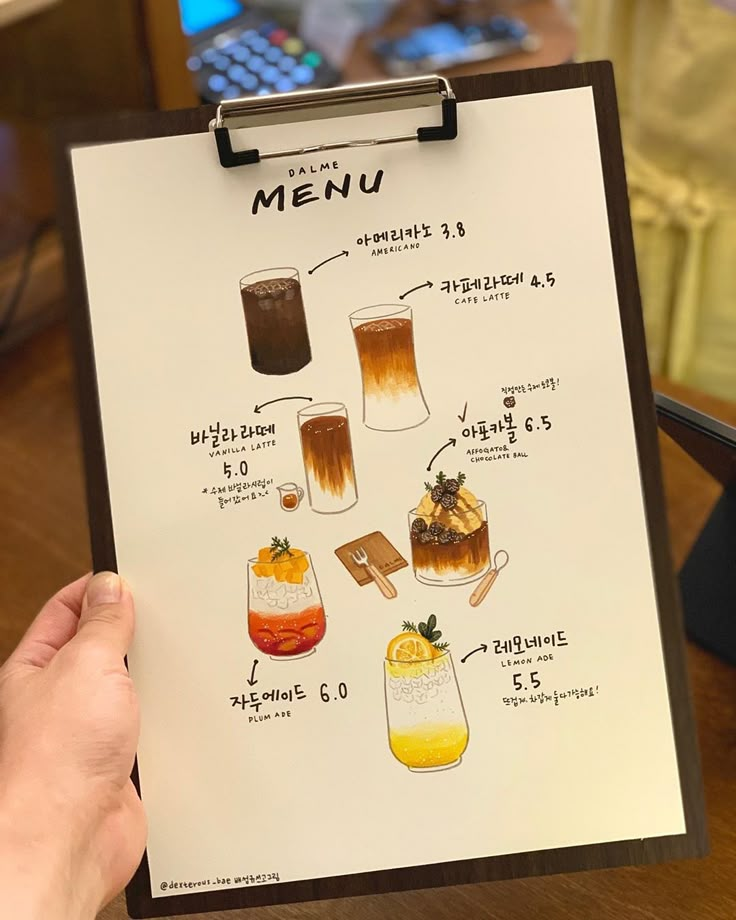 DALME
MENU
아메리카노 3.8
AMERICANO
카페라떼 4.5
CAFE LATTE
바닐라라떼
VANILLA LATTE
5.0
*수제 바닐라시럽이
들어갔어요>.<
직접만든 수제 초코볼!
아포카볼 6.5
AFFOGATO&
CHOCOLATE BALL
DALME
자두에이드 6.0
PLUM ADE
레모네이드
LEMON ADE
5.5
뜨겁게, 차갑게 둘다가능해요!
@dexterous_bae